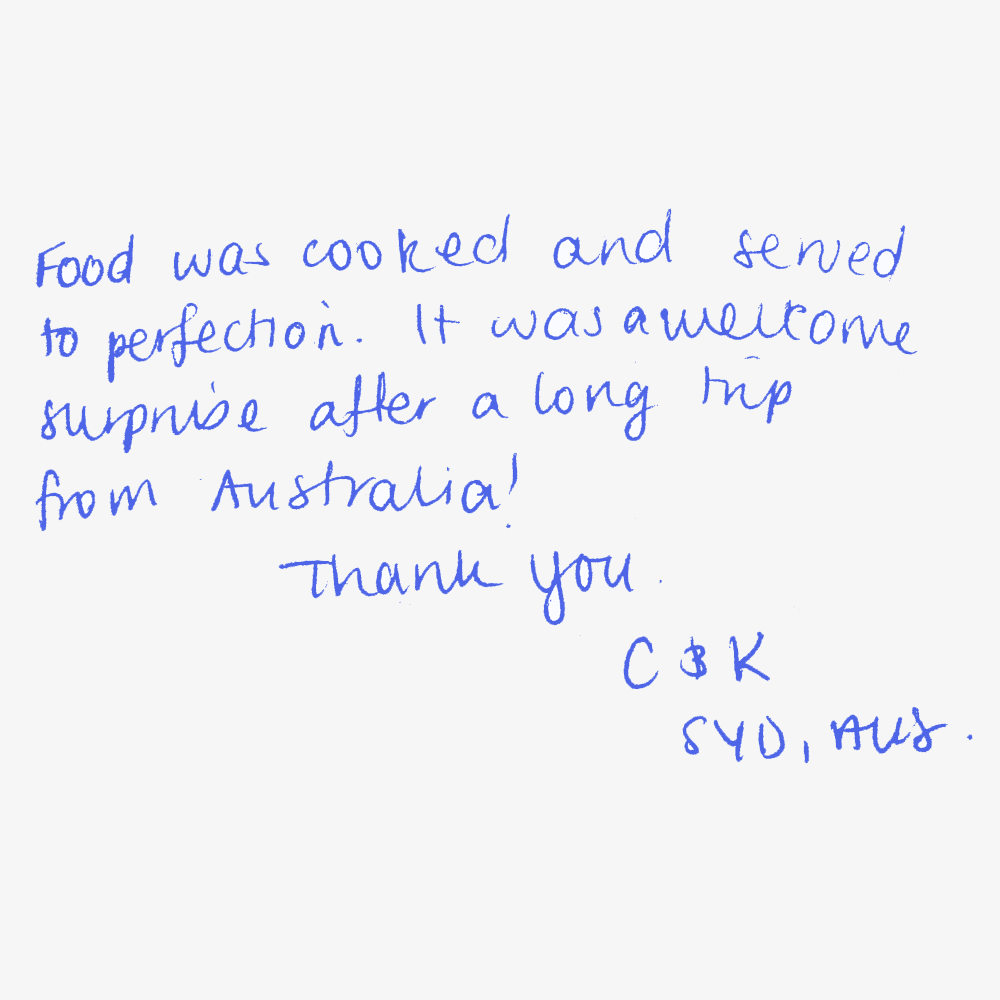 Food was cooked and served
to perfection. It was a welcome
surprise after a long trip
from Australia!
Thank you.
C & K
SYD, AUS.